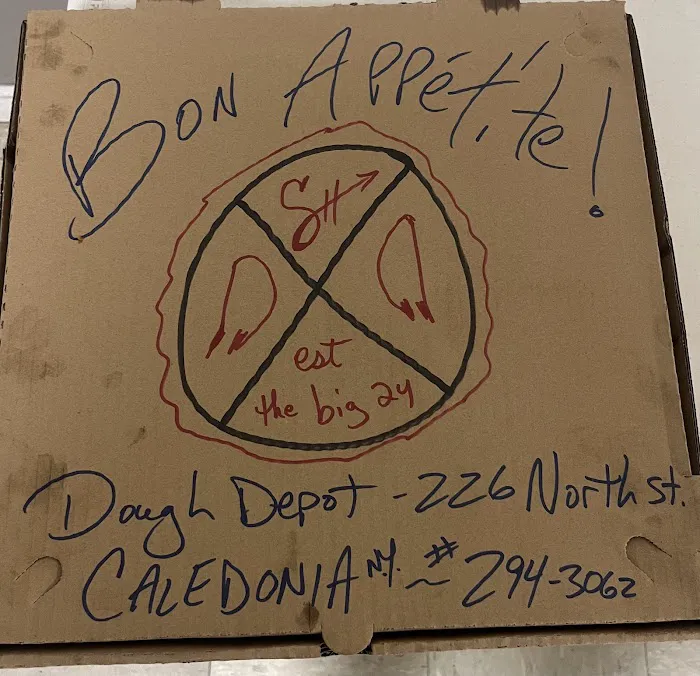 BON APPÉTÍte!
SH
est
the big 24
Dough Depot - 226 North st.
CALEDONIA NY. ~ # 294-3062